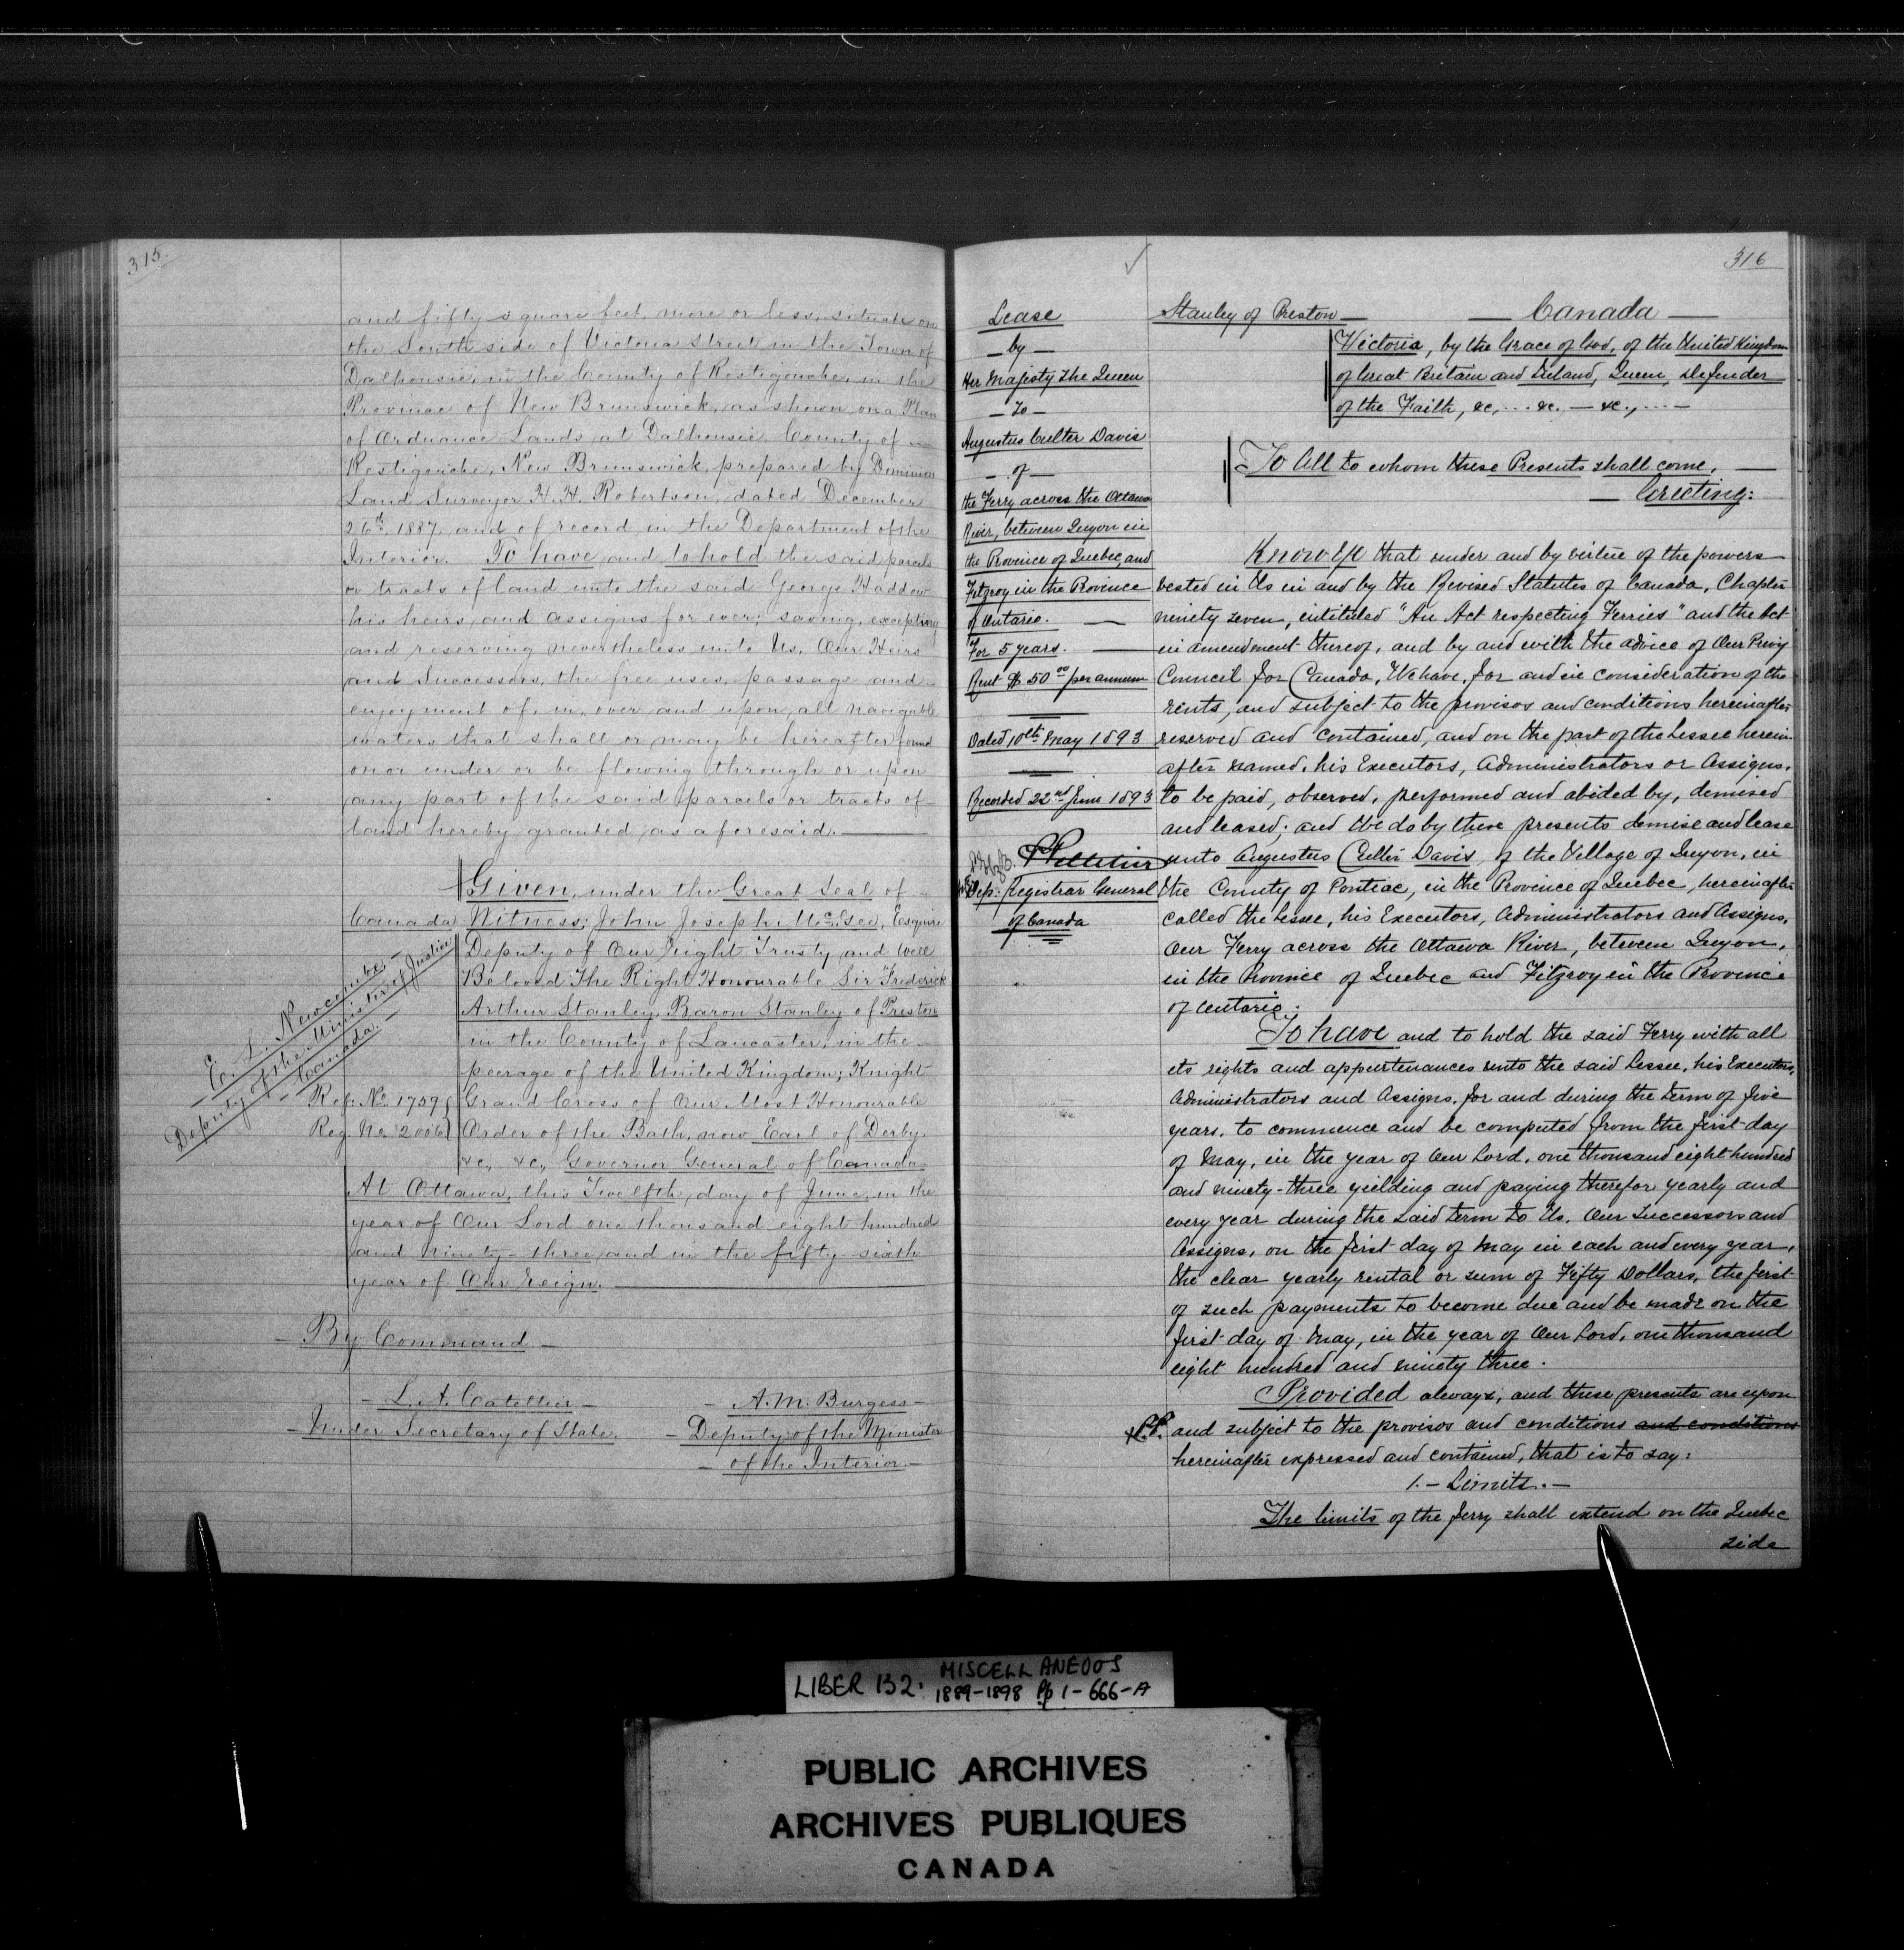 315.
and fifty square feet, more or less, situate on
the South side of Victoria Street in the Town of
Dalhousie, in the County of Restigouche, in the
Province of New Brunswick, as shown on a Plan
of Ordnance Lands at Dalhousie, County of —
Restigouche, New Brunswick, prepared by Dominion
Land Surveyor H. H. Robertson, dated December
26th 1887, and of record in the Department of the
Interior. To have and to hold the said parcels
or tracts of land unto the said George Haddow
his heirs and assigns for ever; saving, excepting
and reserving nevertheless unto Us, Our Heirs
and Successors, the free uses, passage and
enjoyment of, in, over and upon, all navigable
waters that shall or may be hereafter found
on or under or be flowing through or upon
any part of the said parcels or tracts of
land hereby granted, as aforesaid. —
Given, under the Great Seal of —
Canada Witness; John Joseph McGee, Esquire
Deputy of Our Right Trusty and Well
Beloved The Right Honourable Sir Frederick
Arthur Stanley, Baron Stanley of Preston
in the County of Lancaster, in the —
peerage of the United Kingdom; Knight
Grand Cross of Our Most Honourable
Order of the Bath, now Earl of Derby,
&c., &c., Governor General of Canada.
At Ottawa, this Twelfth, day of June, in the
year of Our Lord one thousand eight hundred
and ninety-three, and in the fifty-sixth
year of Our Reign. —
E. L. Newcombe —
Deputy of the Minister of Justice
— Canada. —
Ref. No. 1759
Reg. No. 2006
— By Command —
— L. A. Catellier —
— Under Secretary of State.
— A. M. Burgess —
— Deputy of the Minister
— of the Interior. —
316
Lease
— by —
Her Majesty the Queen
— to —
Augustus Culter Davis
— of —
the Ferry across the Ottawa
River, between Quyon in
the Province of Quebec, and
Fitzroy in the Province
of Ontario. —
For 5 years. —
Rent $50.00 per annum
Dated 10th May 1893
Recorded 22nd June 1893
P Pelletier
Dep: Registrar General
of Canada
Stanley of Preston — — Canada —
Victoria, by the Grace of God, of the United Kingdom
of Great Britain and Ireland, Queen, Defender
of the Faith, &c, ... &c. — &c., ... —
To All to whom these Presents shall come, —
— Greeting:
Know Ye that under and by virtue of the powers
vested in Us in and by the Revised Statutes of Canada, Chapter
ninety seven, intituled "An Act respecting Ferries" and the Act
in amendment thereof, and by and with the advice of Our Privy
Council for Canada, We have, for and in consideration of the
rents, and subject to the provisos and conditions hereinafter
reserved and contained, and on the part of the Lessee herein-
after named, his Executors, Administrators or Assigns,
to be paid, observed, performed and abided by, demised
and leased; and We do by these presents demise and lease
unto Augustus Culter Davis, of the Village of Quyon, in
the County of Pontiac, in the Province of Quebec, hereinafter
called the Lessee, his Executors, Administrators and Assigns,
Our Ferry across the Ottawa River, between Quyon,
in the Province of Quebec and Fitzroy in the Province
of Ontario.
To have and to hold the said Ferry with all
its rights and appurtenances unto the said Lessee, his Executors,
Administrators and Assigns, for and during the term of five
years, to commence and be computed from the first day
of May, in the year of Our Lord, one thousand eight hundred
and ninety-three yielding and paying therefor yearly and
every year during the said term to Us, Our Successors and
Assigns, on the first day of May in each and every year,
the clear yearly rental or sum of Fifty Dollars, the first
of such payments to become due and be made on the
first day of May, in the year of Our Lord, one thousand
eight hundred and ninety three.
Provided always; and these presents are upon
x P.P. and subject to the provisos and conditions and conditions
hereinafter expressed and contained, that is to say:
1. — Limits. —
The limits of the ferry shall extend on the Quebec
side
LIBER 132: MISCELLANEOUS
1889-1898 Pp 1-666-A
PUBLIC ARCHIVES
ARCHIVES PUBLIQUES
CANADA